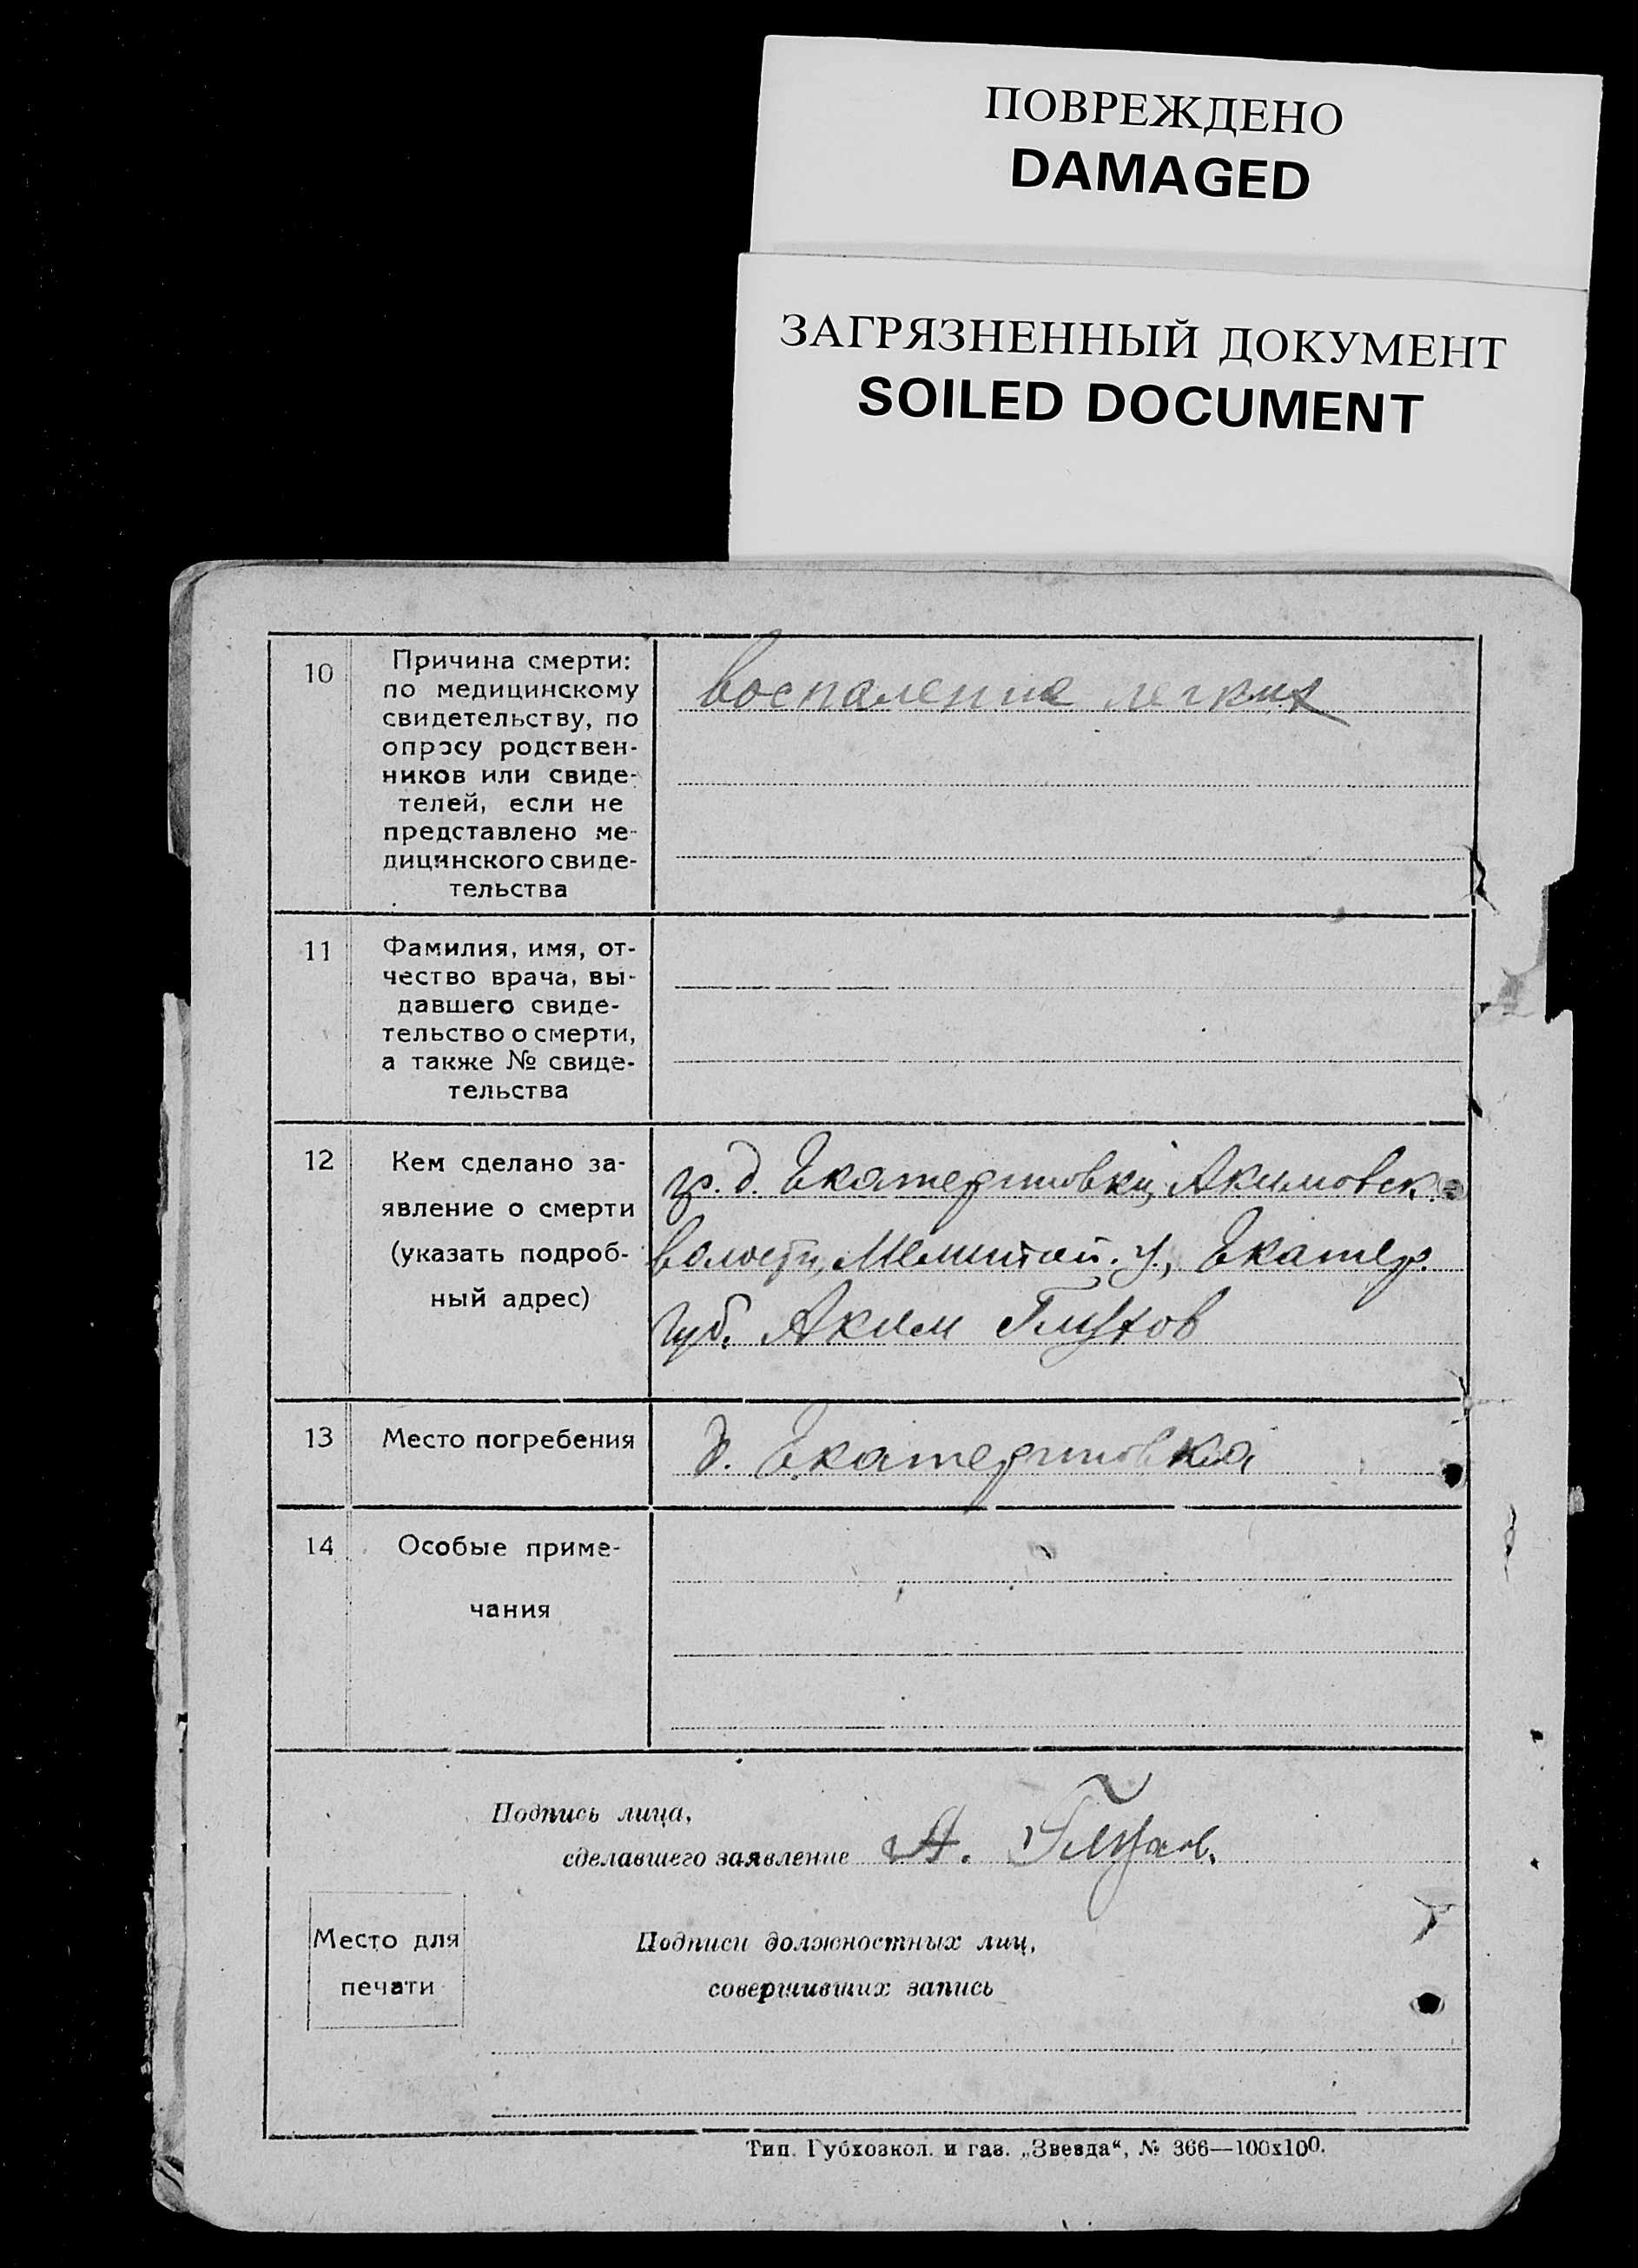 ПОВРЕЖДЕНО
DAMAGED
ЗАГРЯЗНЕННЫЙ ДОКУМЕНТ
SOILED DOCUMENT
10
Причина смерти:
по медицинскому
свидетельству, по
опросу родствен-
ников или свиде-
телей, если не
представлено ме-
дицинского свиде-
тельства
воспаление легких
11
Фамилия, имя, от-
чество врача, вы-
давшего свиде-
тельство о смерти,
а также № свиде-
тельства
12
Кем сделано за-
явление о смерти
(указать подроб-
ный адрес)
гр. д. Екатериновки, Акимовск.
волости, Мелитоп. у., Екатер.
губ. Аким Глухов
13
Место погребения
д. Екатериновка
14
Особые приме-
чания
Подпись лица,
сделавшего заявление А.
Место для
печати
Подписи должностных лиц,
совершивших запись
Тип. Губхозкол. и газ. „Звезда“, № 366—100х100.